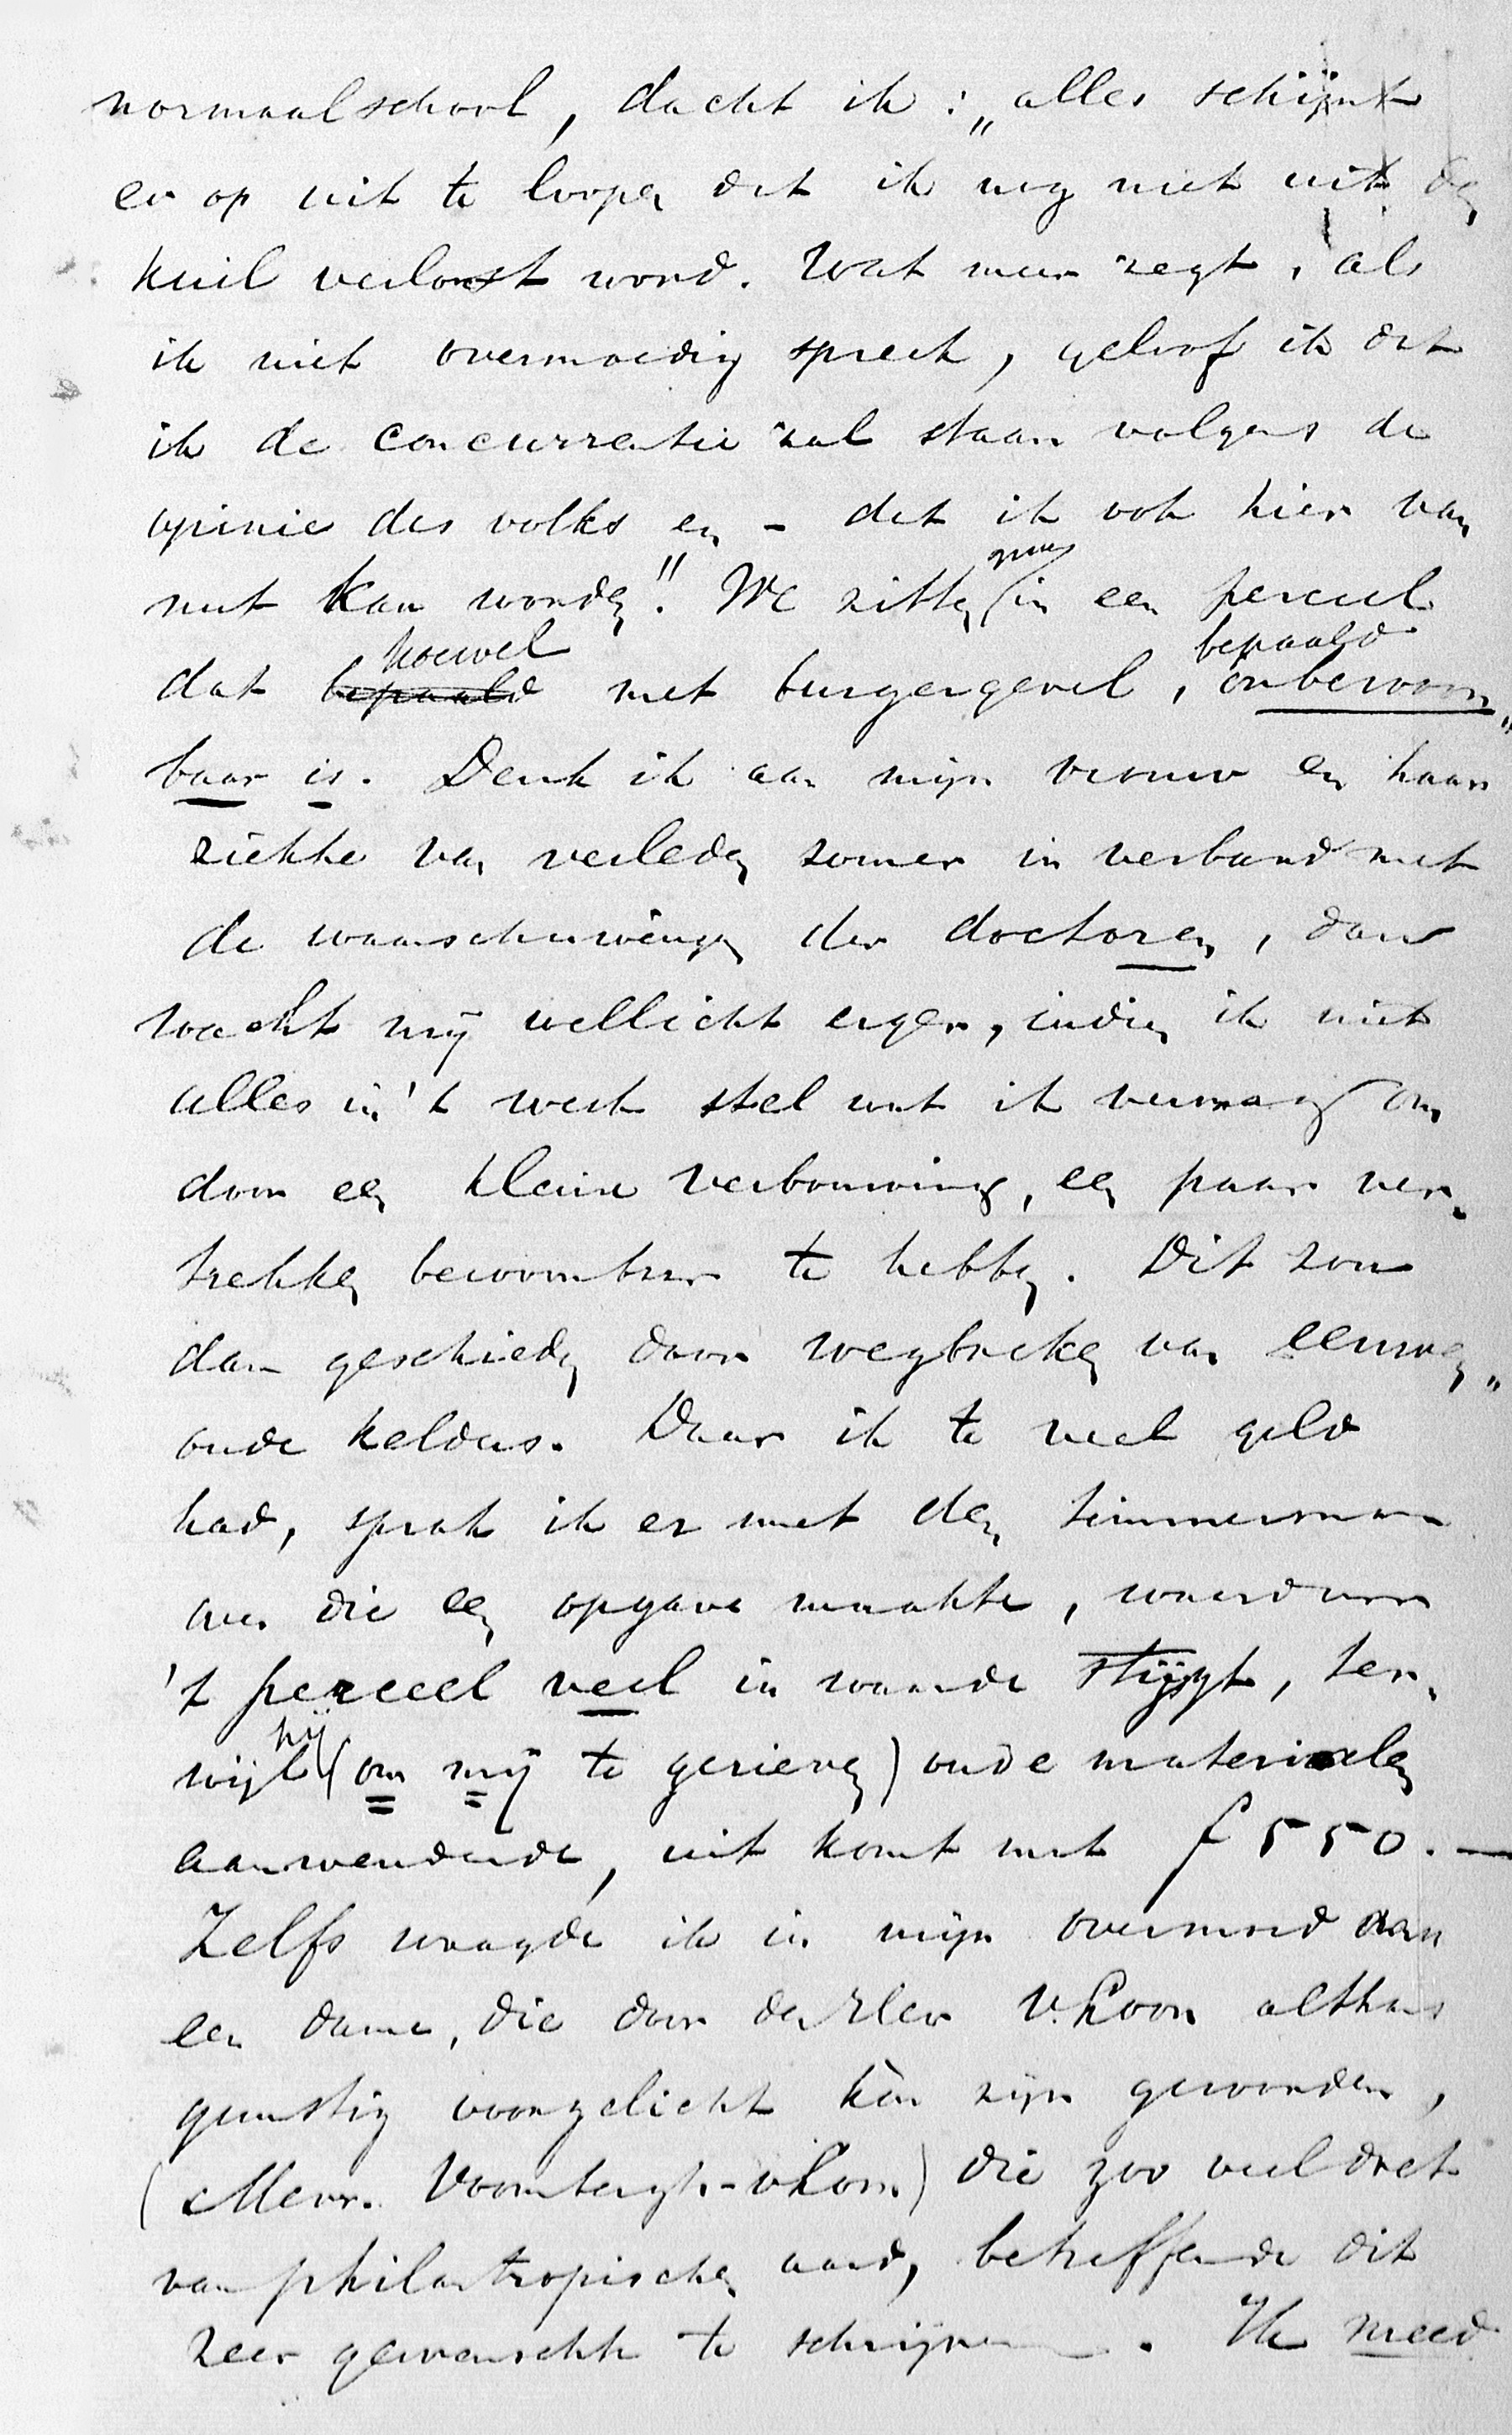 normaalschool, dacht ik: „alles schijnt
er op uit te loopen dat ik nog niet uit den
kuil verlost word. Wat men zegt, als
ik niet overmoedig spreek, geloof ik dat
ik de concurrentie zal staan volgens de
opinie des volks en - dat ik ook hier van
nut kan worden!" We zitten in een perceel
dat hoewel bepaald met burgergevel, bepaald onbewoon„
baar is. Denk ik aan mijn vrouw en haar
ziekte van verleden zomer in verband met
de waarschuwingen der doctoren, dan
wacht mij wellicht erger, indien ik niet
alles in 't werk stel wat ik vermag om
door een kleine verbouwing, een paar ver„
trekken bewoonbaar te hebben. Dit zou
dan geschieden door wegbreken van eenige„
oude kelders. Daar ik te veel geld
had, sprak ik er met den timmerman
over die een opgave maakte, waardoor
't perceel veel in waarde stijgt, ter„
wijl hij (om mij te gerieven) oude materialen
aanwendende, uit komt met f 550.—
Zelfs waagde ik in mijn overmoed aan
een dame, die door den Heer v. Loon althans
gunstig voorgelicht kàn zijn geworden,
(Mevr. Voombergh-v Loon) die zoo veel doet
van philantropischen aard, betreffende dit
zeer gewenschte te schrijven. Ik meed